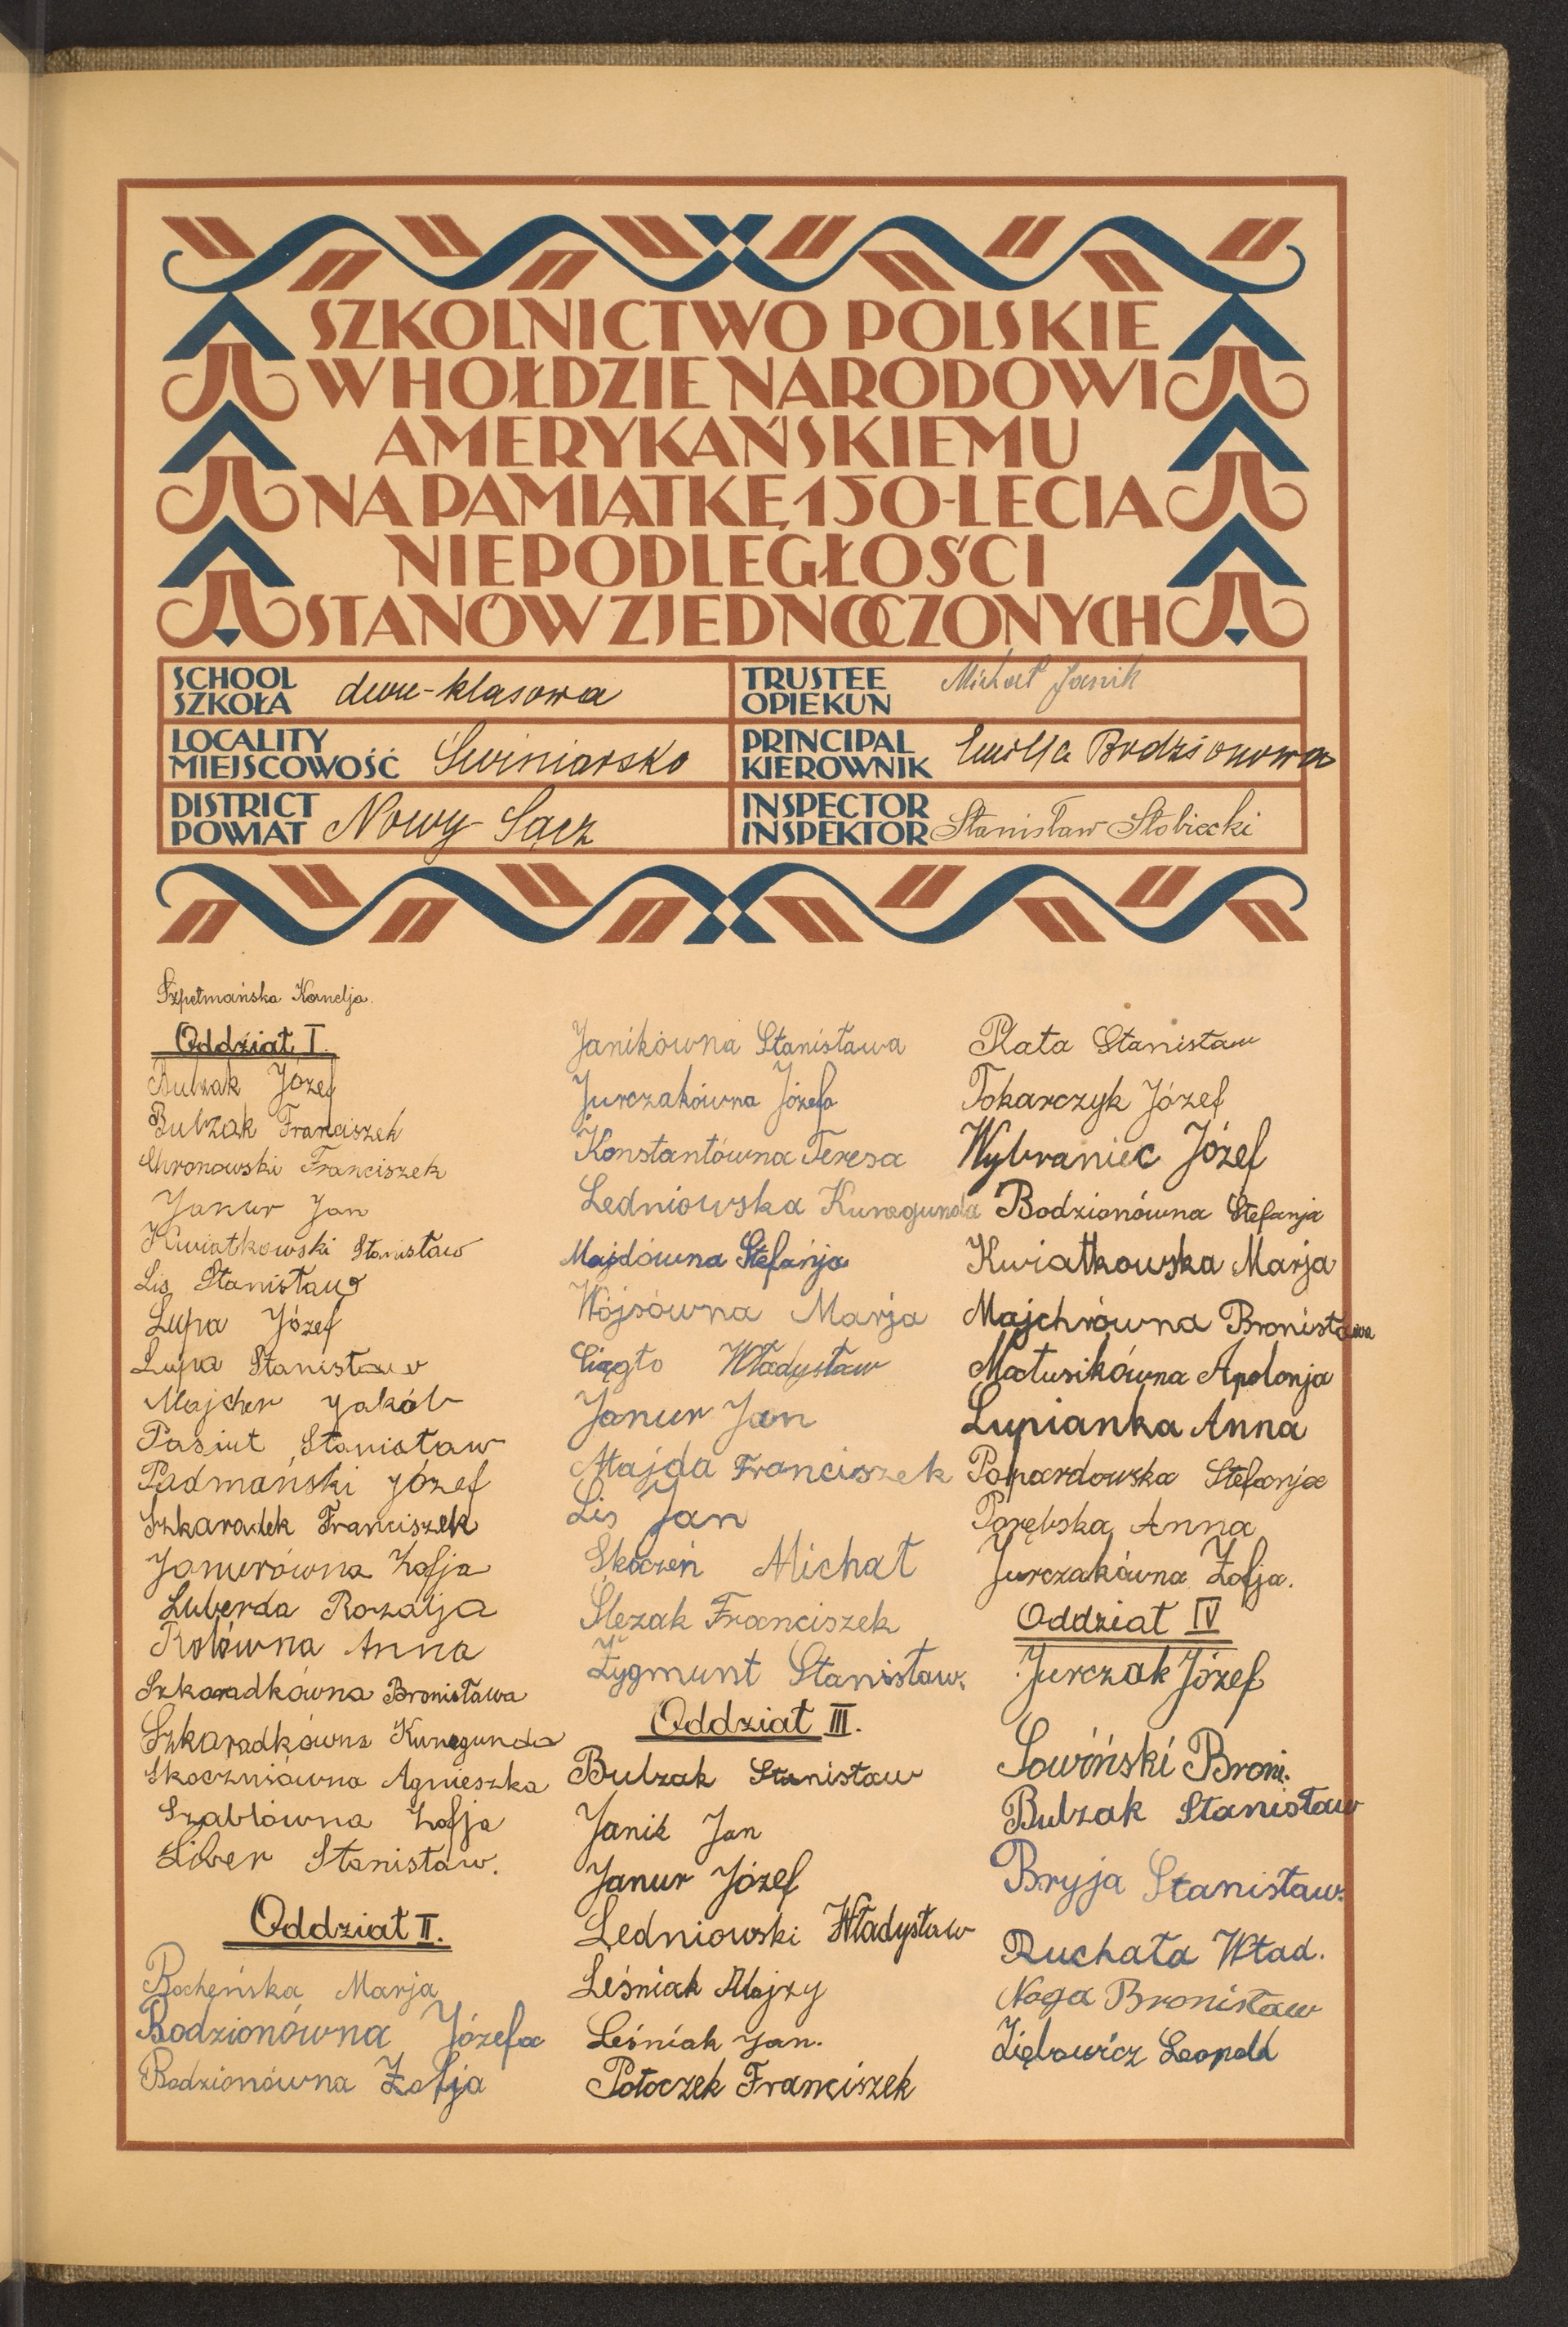 SZKOLNICTWO POLSKIE
W HOŁDZIE NARODOWI
AMERYKAŃSKIEMU
NA PAMIĄTKĘ 150-LECIA
NIEPODLEGŁOŚCI
STANÓW ZJEDNOCZONYCH
SCHOOL
SZKOŁA
dwu-klasowa
LOCALITY
MIEJSCOWOŚĆ
Świniarsko
DISTRICT
POWIAT
Nowy-Sącz
TRUSTEE
OPIEKUN
Michał Janik
PRINCIPAL
KIEROWNIK
Emilja Bodzionowa
INSPECTOR
INSPEKTOR
Stanisław Stobiecki
Szpetmańska Kornelja.
Oddział I.
Bulzak Józef
Bulzak Franciszek
Chronowski Franciszek
Janur Jan
Kwiatkowski Stanisław
Lis Stanisław
Lupa Józef
Lupa Stanisław
Majcher Jakób
Pasiut Stanisław
Padmański Józef
Szkaradek Franciszek
Janurówna Zofja
Luberda Rozalja
Rolówna Anna
Szkaradkówna Bronisława
Szkaradkówna Kunegunda
Skoczniówna Agnieszka
Szablówna Zofja
Liber Stanisław.
Oddział II.
Bocheńska Marja
Bodzionówna Józefa
Bodzionówna Zofja
Janikówna Stanisława
Jurczakówna Józefa
Konstantówna Teresa
Ledniowska Kunegunda
Majdówna Stefanja
Wójsówna Marja
Ciągło Władysław
Janur Jan
Majda Franciszek
Lis Jan
Skoczeń Michał
Ślezak Franciszek
Zygmunt Stanisław.
Oddział III.
Bulzak Stanisław
Janik Jan
Janur Józef
Ledniowski Władysław
Leśniak Alojzy
Leśniak Jan.
Potoczek Franciszek
Plata Stanisław
Tokarczyk Józef
Wybraniec Józef
Bodzionówna Stefanja
Kwiatkowska Marja
Majchrówna Bronisława
Matusikówna Apolonja
Lupianka Anna
Popardowska Stefanja
Porębska Anna
Jurczakówna Zofja.
Oddział IV
Jurczak Józef
Sowiński Broni.
Bulzak Stanisław
Bryja Stanisław.
Ruchała Wład.
Noga Bronisław
Ziębowicz Leopold